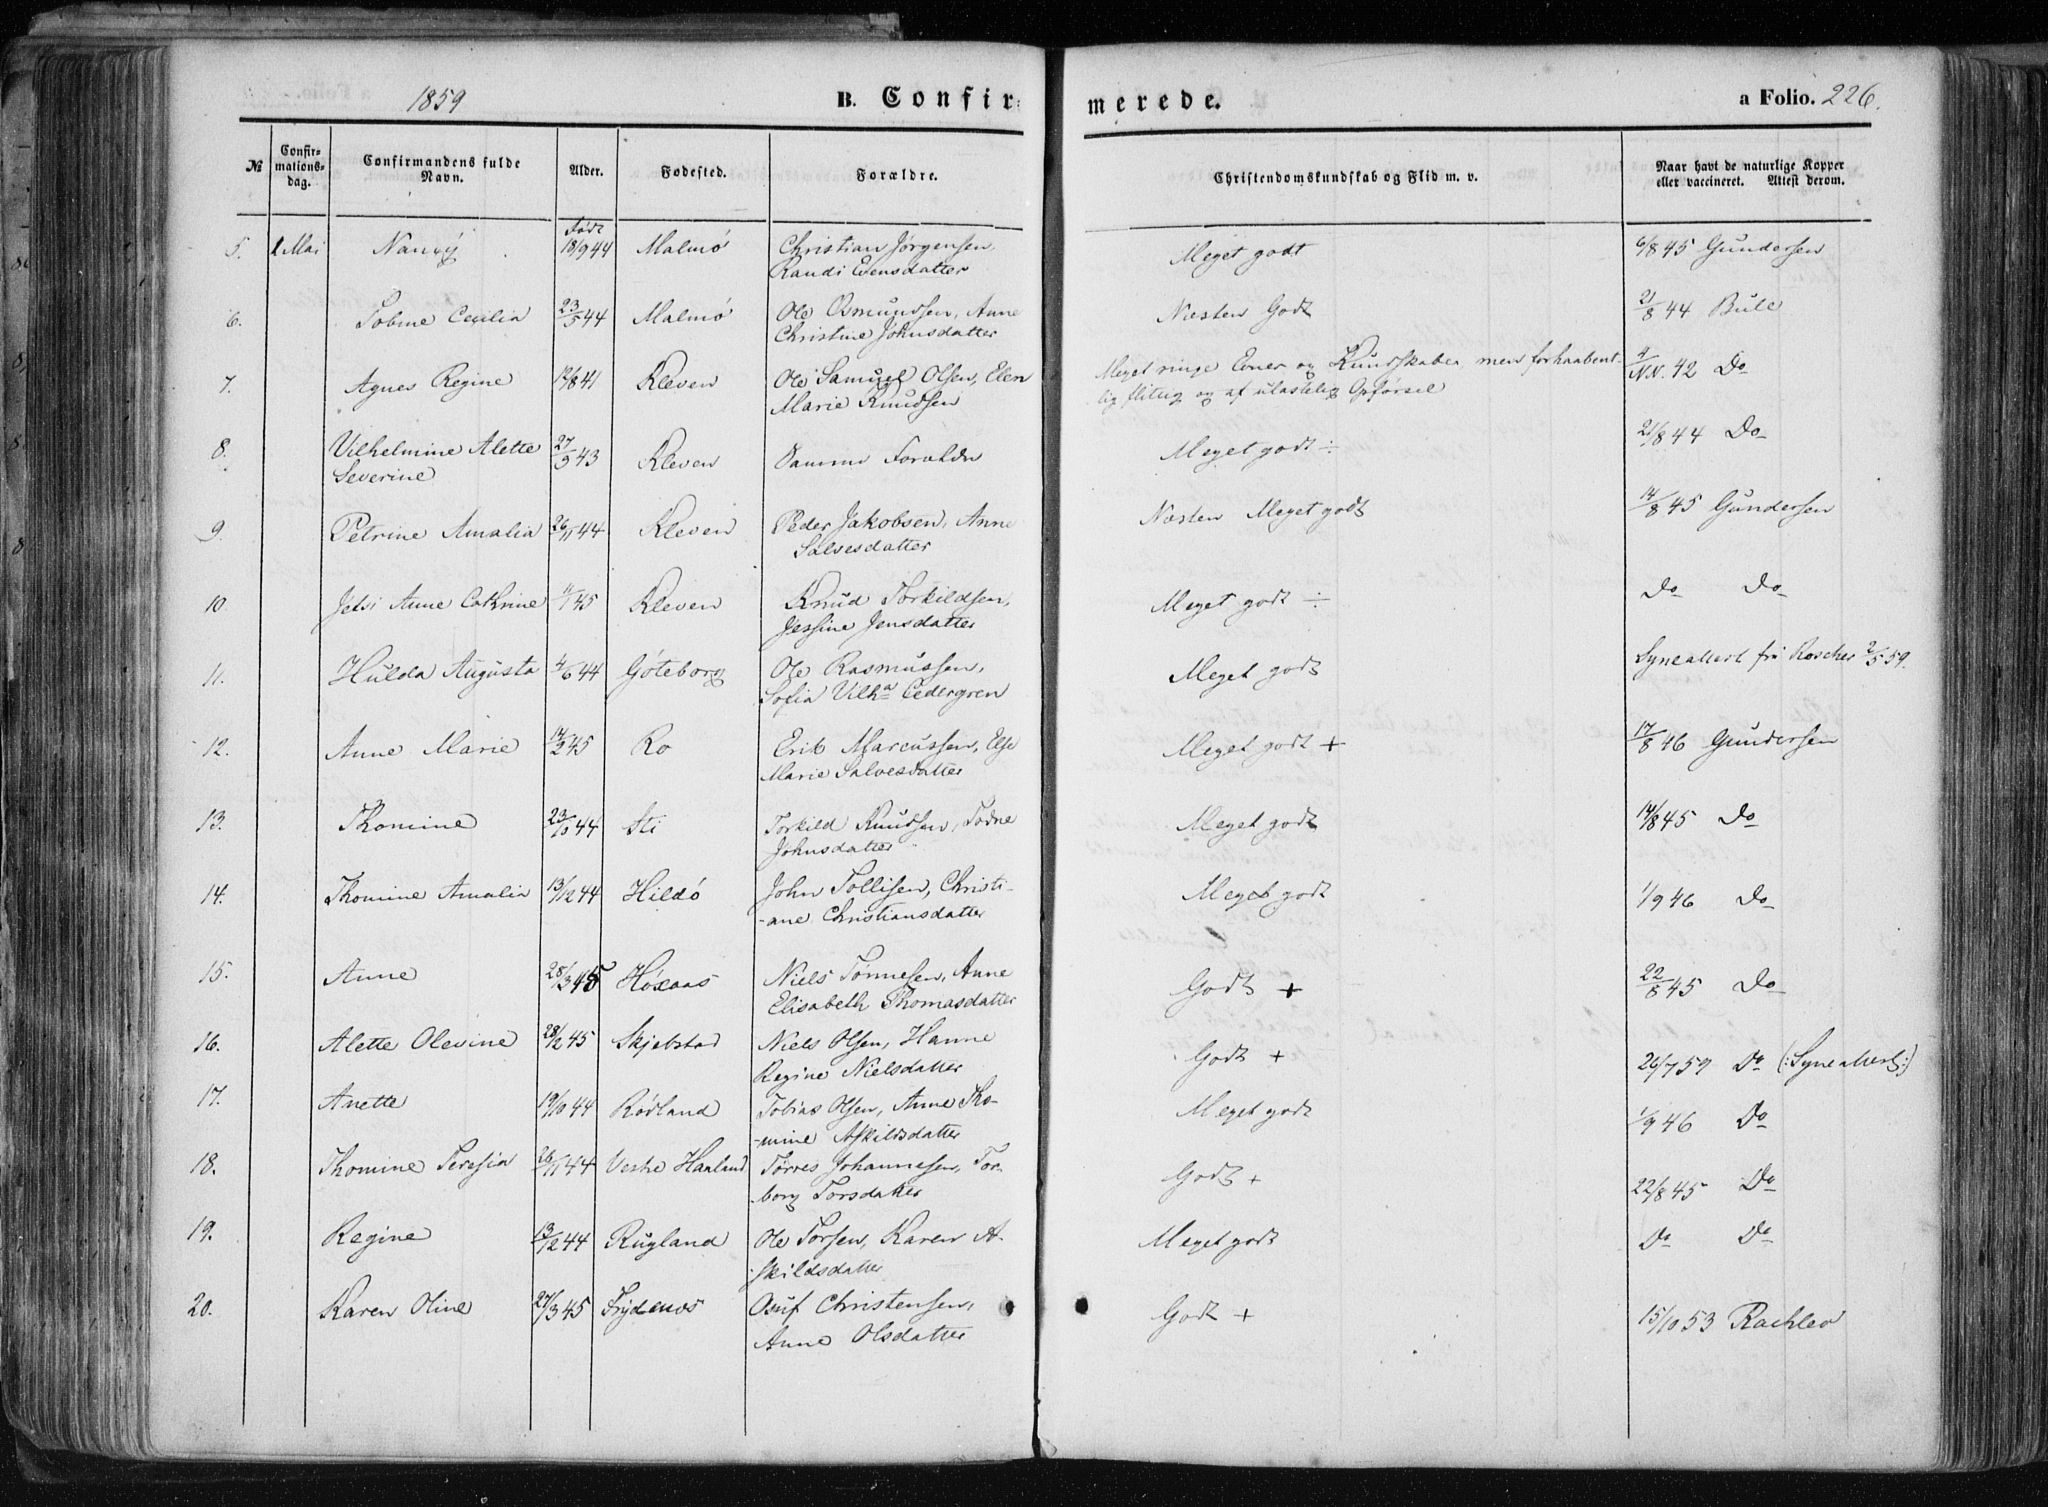 1859 B. Confir- merede. a Folio. 226.
№ Confir-mations-dag. Confirmandens fulde Navn. Alder. Fødested. Forældre. Christendomskundskab og Flid m. v. Naar havt de naturlige Kopper eller vaccineret. Attest derom.
født
5. 1 Mai Nancy 18/9 44 Malmö Christian Jörgensen, Meget godt 6/8 45 Gundersen
Randi Evensdatter
6. Tobine Cecilia 23/5 44 Malmö Ole Osmundsen, Anne Næsten Godt 21/8 44 Bull
Christine Johnsdatter
7. Agnes Regine 19/8 41 Kleven Ole Samuel Olsen, Elen Meget ringe Evner og Kundskaber men forhaabent- 9/N.N. 42 Do
Marie Knudsen lig flittig og af ulastelig Opførsel
8. Vilhelmine Alette 27/5 43 Kleven Samme Forældre Meget godt ÷ 21/8 44 Do
Severine
9. Petrine Amalia 26/11 44 Kleven Peder Jakobsen, Anne Næsten Meget godt 14/8 45 Gundersen
Salvesdatter
10. Jetsi Anne Cathrine 45 Kleven Knud Torkildsen, Meget godt ÷ Do Do
Jessine Jensdatter
11. Hulda Augusta 4/6 44 Göteborg Ole Rasmussen, Meget godt Syneattest fra Roscher 2/5 59.
Sofia Vilha Cedergren
12. Anne Marie 14/2 45 Ro Erik Marcussen, Else Meget godt + 17/8 46 Gundersen
Marie Salvesdatter
13. Thomine 23/10 44 Sti Torkild Knudsen, Todne Meget godt 14/8 45 Do
Johnsdatter
14. Thomine Amalia 13/12 44 Hildö John Tollisen, Christi- Meget godt 1/9 46 Do
-ane Christiansdatter
15. Anne 28/3 45 Höxaas Niels Tønnesen, Anne Godt + 22/8 45 Do
Elisabeth Thomasdatter
16. Alette Olevine 28/2 45 Skjebstad Niels Olsen, Hanne Godt + 26/7 59 Do (:Syneattest:)
Regine Nielsdatter
17. Anette 19/10 44 Rödland Tobias Olsen, Anne Tho- Meget godt 1/9 46 Do
-mine Askildsdatter
18. Thomine Teresia 26/11 44 Vestre Haaland Tørres Johannesen, Tor- Godt + 22/8 45 Do
borg Torsdatter
19. Regine 13/12 44 Rugland Ole Torsen, Karen A- Meget godt Do Do
skildsdatter
20. Karen Oline 27/3 45 Frydenes Osuf Christensen, Godt + 15/10 53 Rachlev
Anne Olsdatter